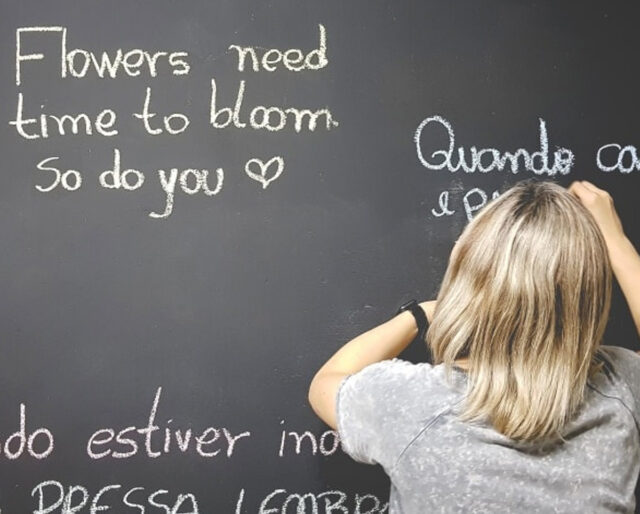 Flowers need
time to bloom.
So do you ♡
Quando ca
e
do estiver
PRESSA